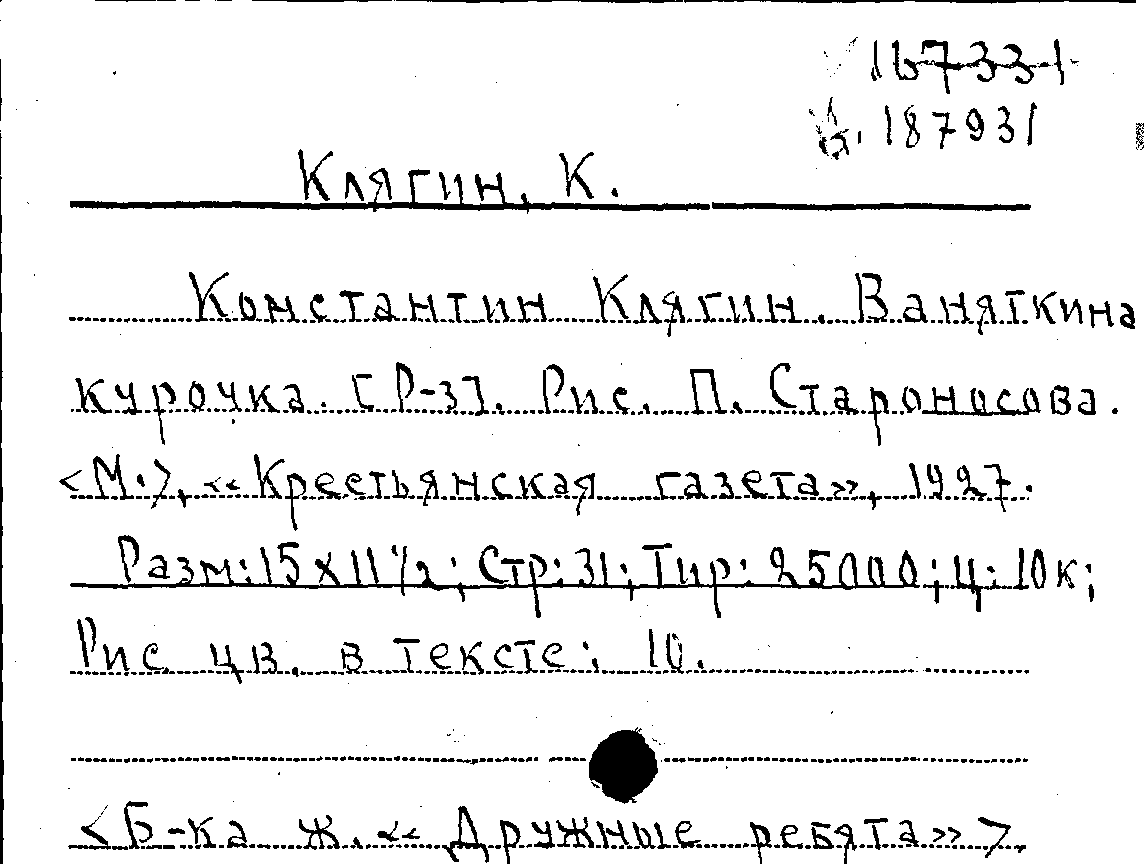 167331
187931
Клягин, К.
Константин Клягин. Ваняткина
курочка. [Р-з]. Рис. П. Староносова.
<М.>, «Крестьянская газета», 1927.
Разм: 15 x 11 1/2; Стр: 31; Тир: 25000; Ц: 10к;
Рис цв. в тексте: 10.
<Б-ка ж. «Дружные ребята»>,